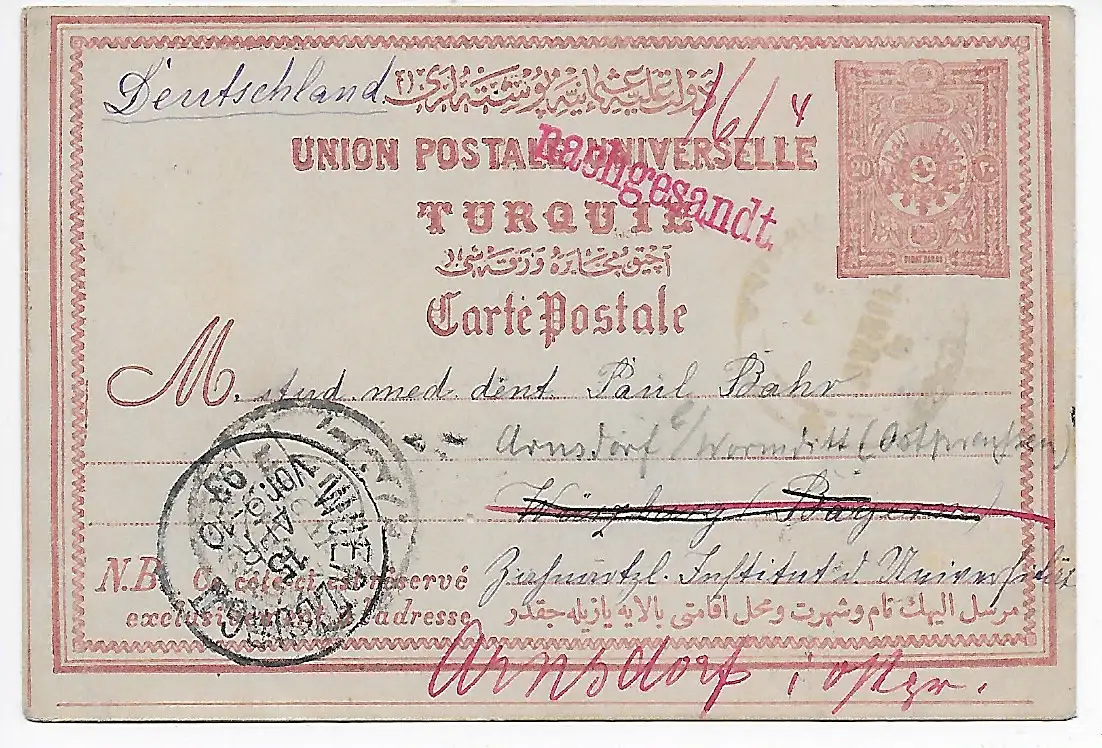 Deutschland
دولت عليه عثمانيه پوسته لرى
UNION POSTALE UNIVERSELLE
nachgesandt.
TURQUIE
20
٢٠
آچيق مخابره ورقه سى
Carte Postale
M. stud med. dent. Paul Bahr
Arnsdorf b/Wormditt (Ostpreußen)
Würzburg (Bayern)
Zahnärztl. Institut d Universität
N.B. Ce côté ci est réservé
exclusivement à l'adresse
مرسل اليهك نام و شهرت و محل اقامتى بالايه يازيله جقدر
Arnsdorf i Ostpr.